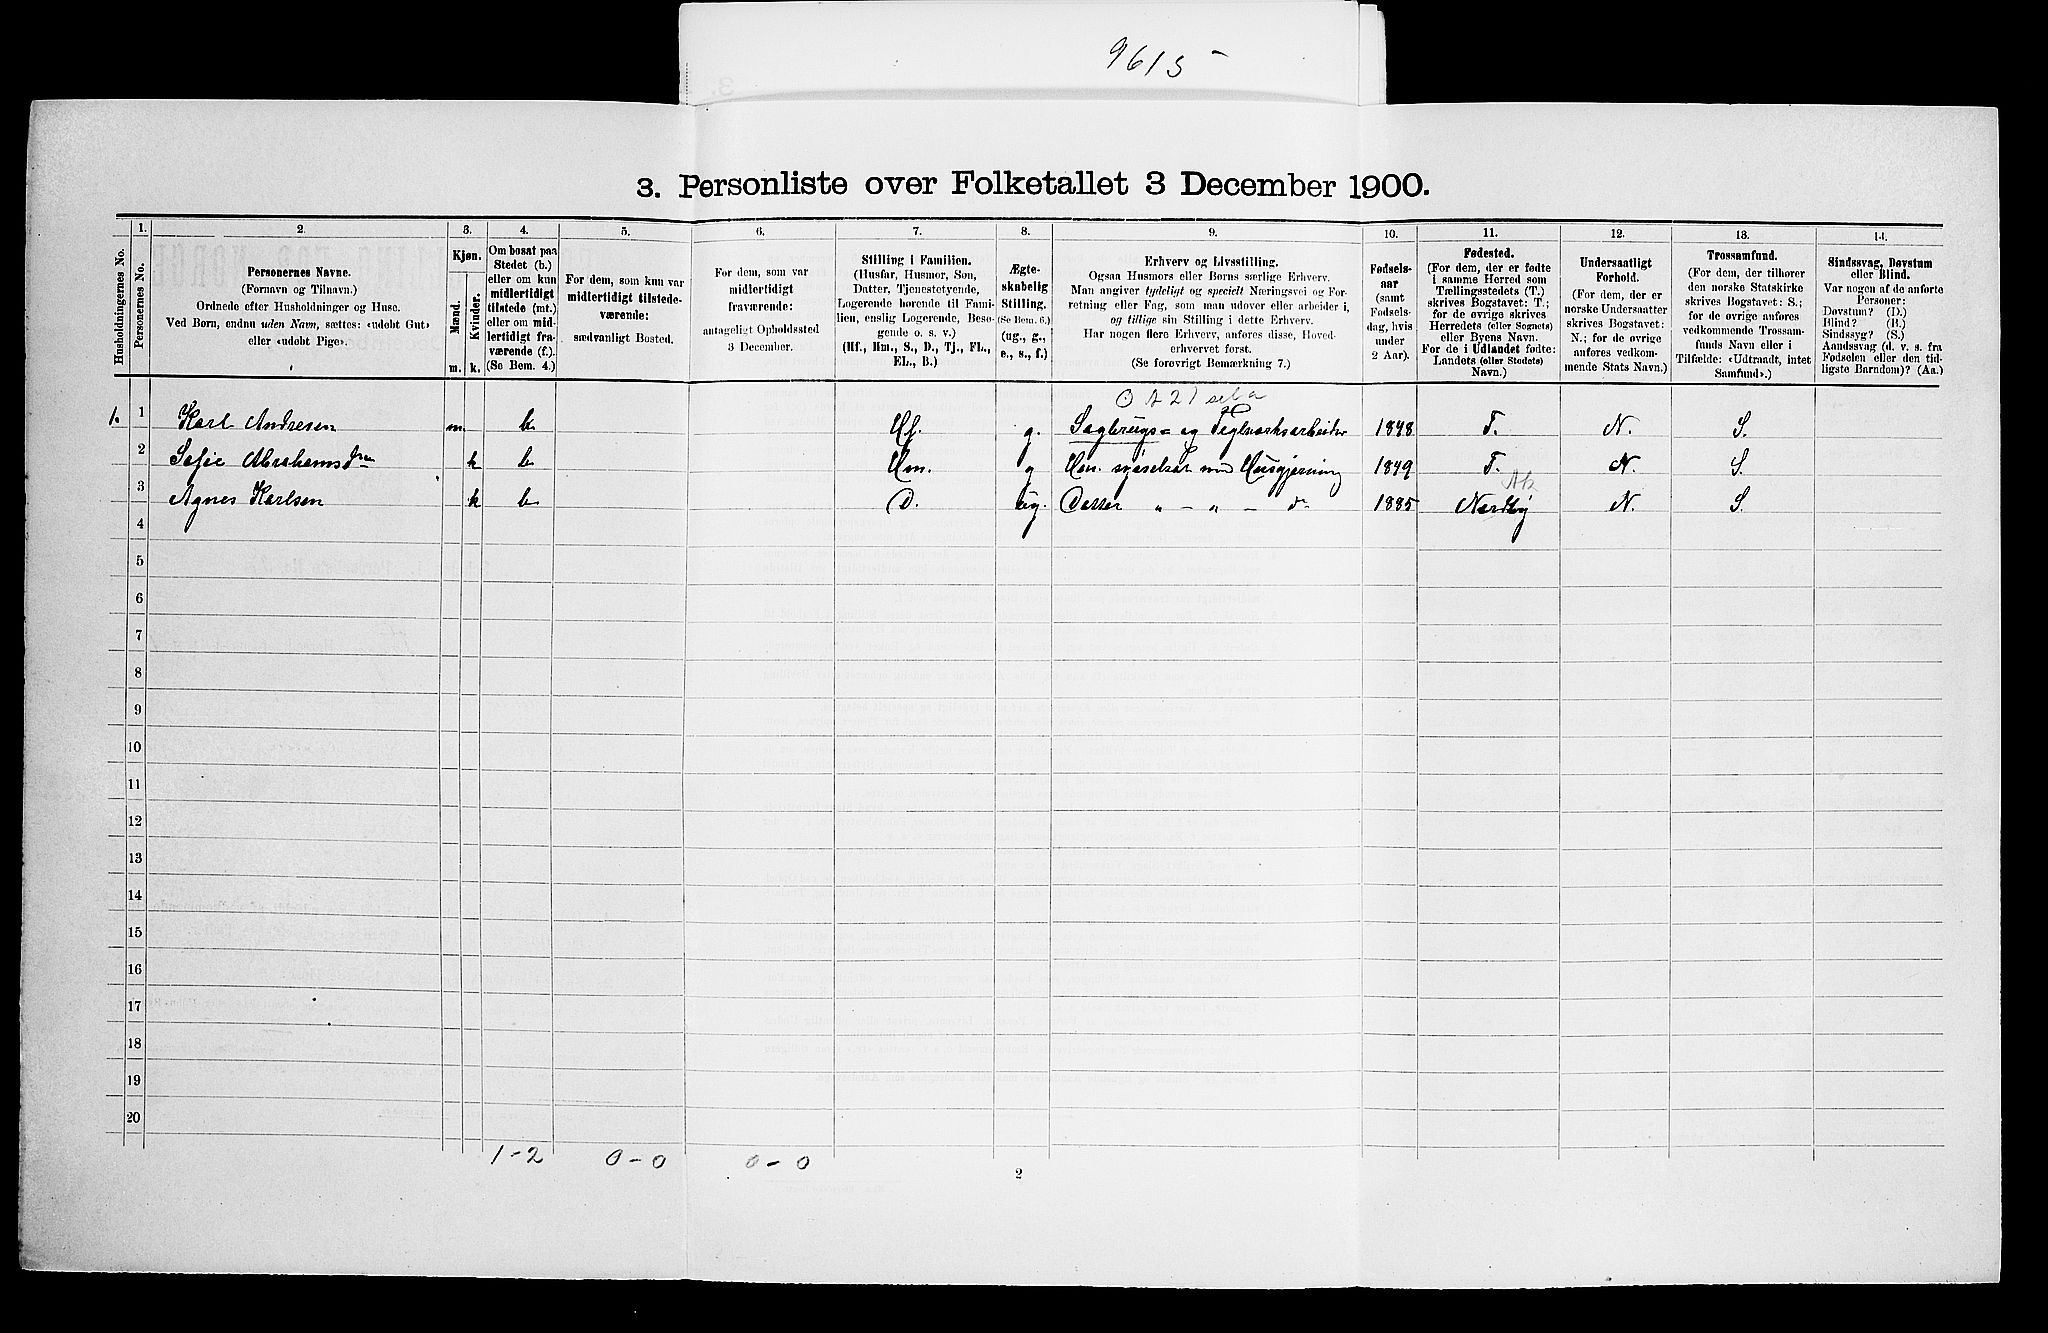 9615
3. Personliste over Folketallet 3 December 1900.
Husholdningernes No.
1.
Personernes No.
2.
Personernes Navne.
(Fornavn og Tilnavn.)
Ordnede efter Husholdninger og Huse.
Ved Børn, endnu uden Navn, sættes: «udøbt Gut»
eller «udøbt Pige».
3.
Kjøn.
Mænd.
Kvinder.
m.
k.
4.
Om bosat paa
Stedet (b.)
eller om kun
midlertidigt
tilstede (mt.)
eller om mid-
lertidigt fra-
værende (f.).
(Se Bem. 4.)
5.
For dem, som kun var
midlertidigt tilstede-
værende:
sædvanligt Bosted.
6.
For dem, som var
midlertidigt
fraværende:
antageligt Opholdssted
3 December.
7.
Stilling i Familien.
(Husfar, Husmor, Søn,
Datter, Tjenestetyende,
Logerende hørende til Fami-
lien, enslig Logerende, Besø-
gende o. s. v.)
(Hf., Hm., S., D., Tj., FL.,
EL., B.)
8.
Ægte-
skabelig
Stilling.
(Se Bem. 6.)
(ug., g.,
e., s., f.)
9.
Erhverv og Livsstilling.
Ogsaa Husmors eller Børns særlige Erhverv.
Man angiver tydeligt og specielt Næringsvei og For-
retning eller Fag, som man udøver eller arbeider i,
og tillige sin Stilling i dette Erhverv.
Har nogen flere Erhverv, anføres disse, Hoved-
erhvervet først.
(Se forøvrigt Bemærkning 7.)
10.
Fødsels-
aar
(samt
Fødsels-
dag, hvis
under
2 Aar).
11.
Fødested.
(For dem, der er fødte
i samme Herred som
Tællingsstedets (T.)
skrives Bogstavet: T.;
for de øvrige skrives
Herredets (eller Sognets)
eller Byens Navn.
For de i Udlandet fødte:
Landets (eller Stedets)
Navn.)
12.
Undersaatligt
Forhold.
(For dem, der er
norske Undersaatter
skrives Bogstavet:
N.; for de øvrige
anføres vedkom-
mende Stats Navn.)
13.
Trossamfund.
(For dem, der tilhører
den norske Statskirke
skrives Bogstavet: S.;
for de øvrige anføres
vedkommende Trossam-
funds Navn eller i
Tilfælde: «Udtraadt, intet
Samfund».)
14.
Sindssvag, Døvstum
eller Blind.
Var nogen af de anførte
Personer:
Døvstum? (D.)
Blind? (B.)
Sindssyg? (S.)
Aandssvag (d. v. s. fra
Fødselen eller den tid-
ligste Barndom)? (Aa.)
1. 1 Karl Andresen m. b. Hf. g. Sagbrugs- og Teglværksarbeider 1848 T. N. S.
2 Sofie Abrahamsdr k b Hm. g Hm. sysselsat med Husgjerning 1849 T. N. S.
3 Agnes Karlsen k b D. ug. Datter " - " - do 1885 Nordby N. S.
4
5
6
7
8
9
10
11
12
13
14
15
16
17
18
19
20
1-2 0-0 0-0
2